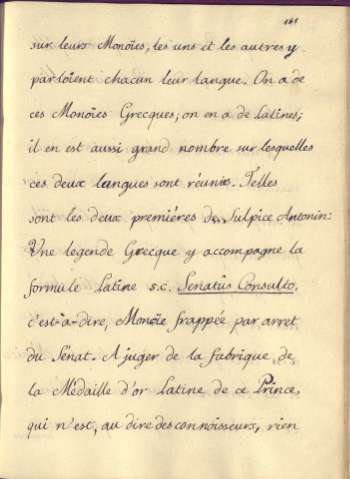 161
sur leurs Monoïes, les uns et les autres y
parloïent chacun leur langue. On a de
ces Monoïes Grecques; on en a de Latines;
il en est aussi grand nombre sur lesquelles
ces deux langues sont réunies. Telles
sont les deux premiéres de Sulpice Antonin:
Une legende Grecque y accompagne la
formule latine s.c. Senatûs Consulto,
c'est-à-dire, Monoïe frappée par arret
du Sénat. A juger de la fabrique, de
la Médaille d'or Latine de ce Prince,
qui n'est, au dire des connoisseurs, rien